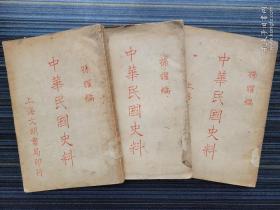 孫曜編
中華民國史料
上海文明書局印行
孫曜編
中華民國史料
孫曜編
中華民國史料